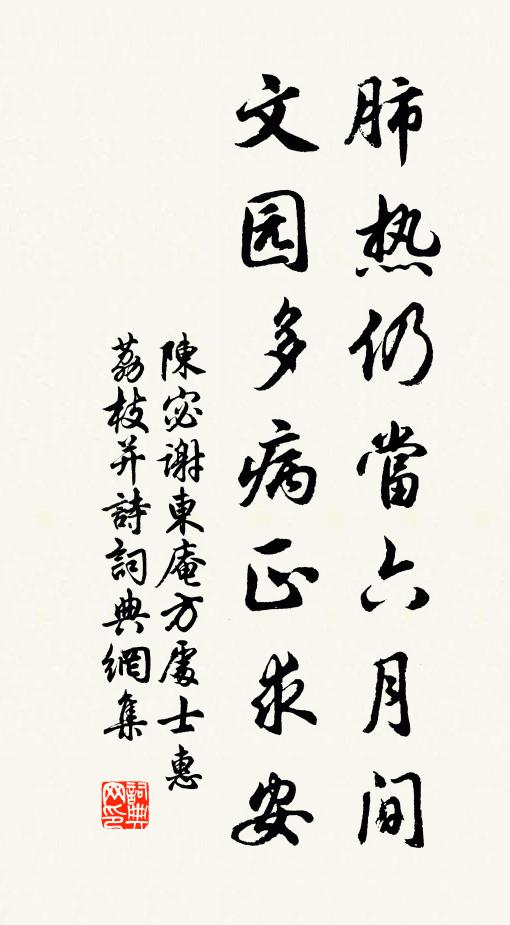 肺热仍當六月间
文园多病正求安
陳宓谢東庵方處士惠
荔枝并詩詞典網集
詞典
网印